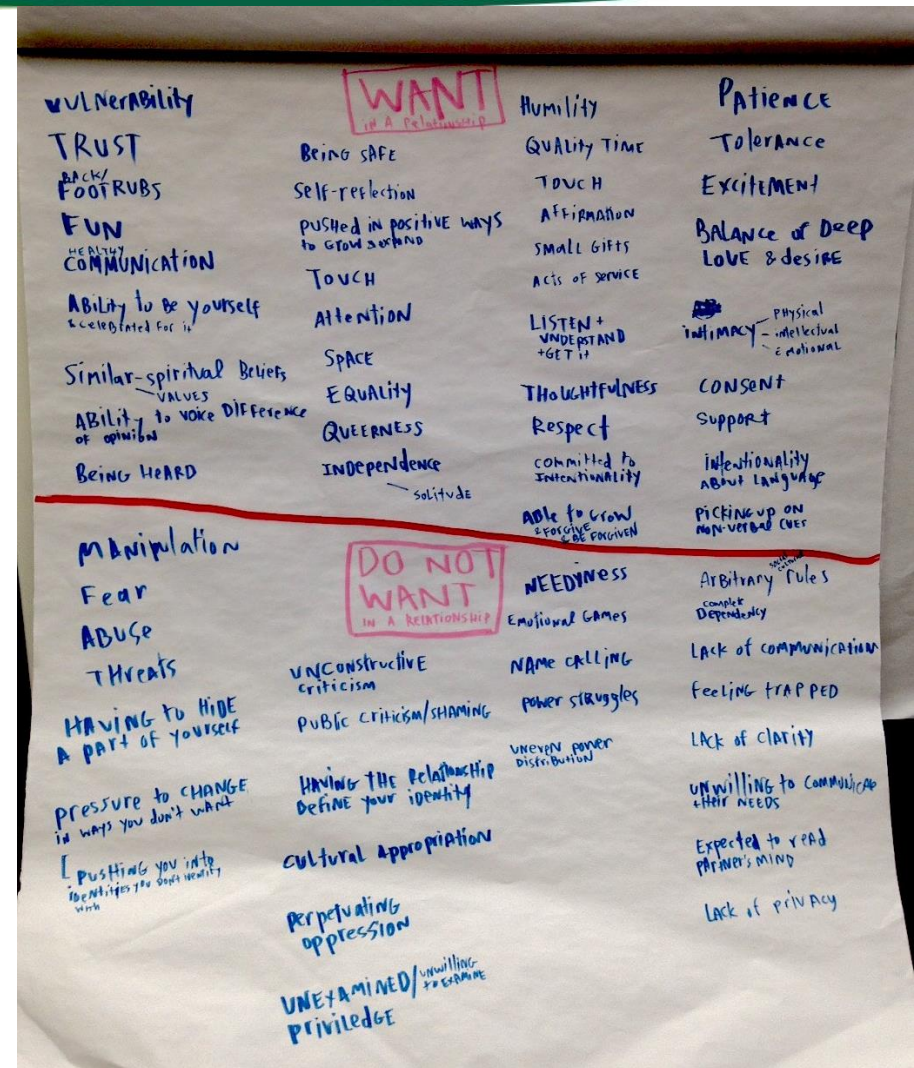 WANT
IN A RelationSHIP
VULNerABility
TRUST
BACK/
FOOTRUBS
FUN
HEALTHY
COMMUNICATION
ABiLity to Be yourself
& celebrated for it
Similar-spiritual Beliefs
VALUES
ABiLity to voice DIFFerence
of opinion
Being HEARD
Being SAFE
Self-reflection
PUSHED in positive WAYS
to Grow & expand
TOUCH
Attention
SPACE
EQUALITY
QUEERNESS
INDependence
solitude
Humility
QUALity TIME
TOUCH
AFFIRMATION
SMALL Gifts
Acts of service
LISTEN +
UNDERSTAND
+GET it
THOUGHTFULNESS
Respect
committed to
INTENTIONALITY
ABle to Grow
& FORGIVE
& BE FORGIVEN
PAtieNCE
TolerANCE
ExcitEMENt
BALANCE of Deep
LOVE & desire
intimacy
- PHysical
- intellectual
- Emotional
CONSENt
Support
iNtentionality
ABout LANguage
Picking up on
NON-verbal CUES
DO NOT
WANT
IN A RELATIONSHIP
MANipulation
Fear
ABUSe
THreats
HAVING to HIDE
A part of yourself
pressure to CHANGE
in ways you don't want
[ pusHING you into
identities you don't identify
with
UNCONSTRUCTIVE
criticism
PUBlic CRiticism/SHAMING
HAVING THE RelationsHip
Define your identity
CULtural Appropriation
perpetuating
oppression
UNEXAMINED/ unwilling
to EXAMINE
priviledge
NEEDyNess
Emotional GAMES
NAME CALLING
power struggles
UNEVEN power
Distribution
social
cultural
ArBitrary rules
complete
Dependency
LAck of communication
feeLing trAPPED
LAck of clarity
unwilling to communicate
their NEEDS
Expected to reAd
pArtner's MIND
LAck of privAcy